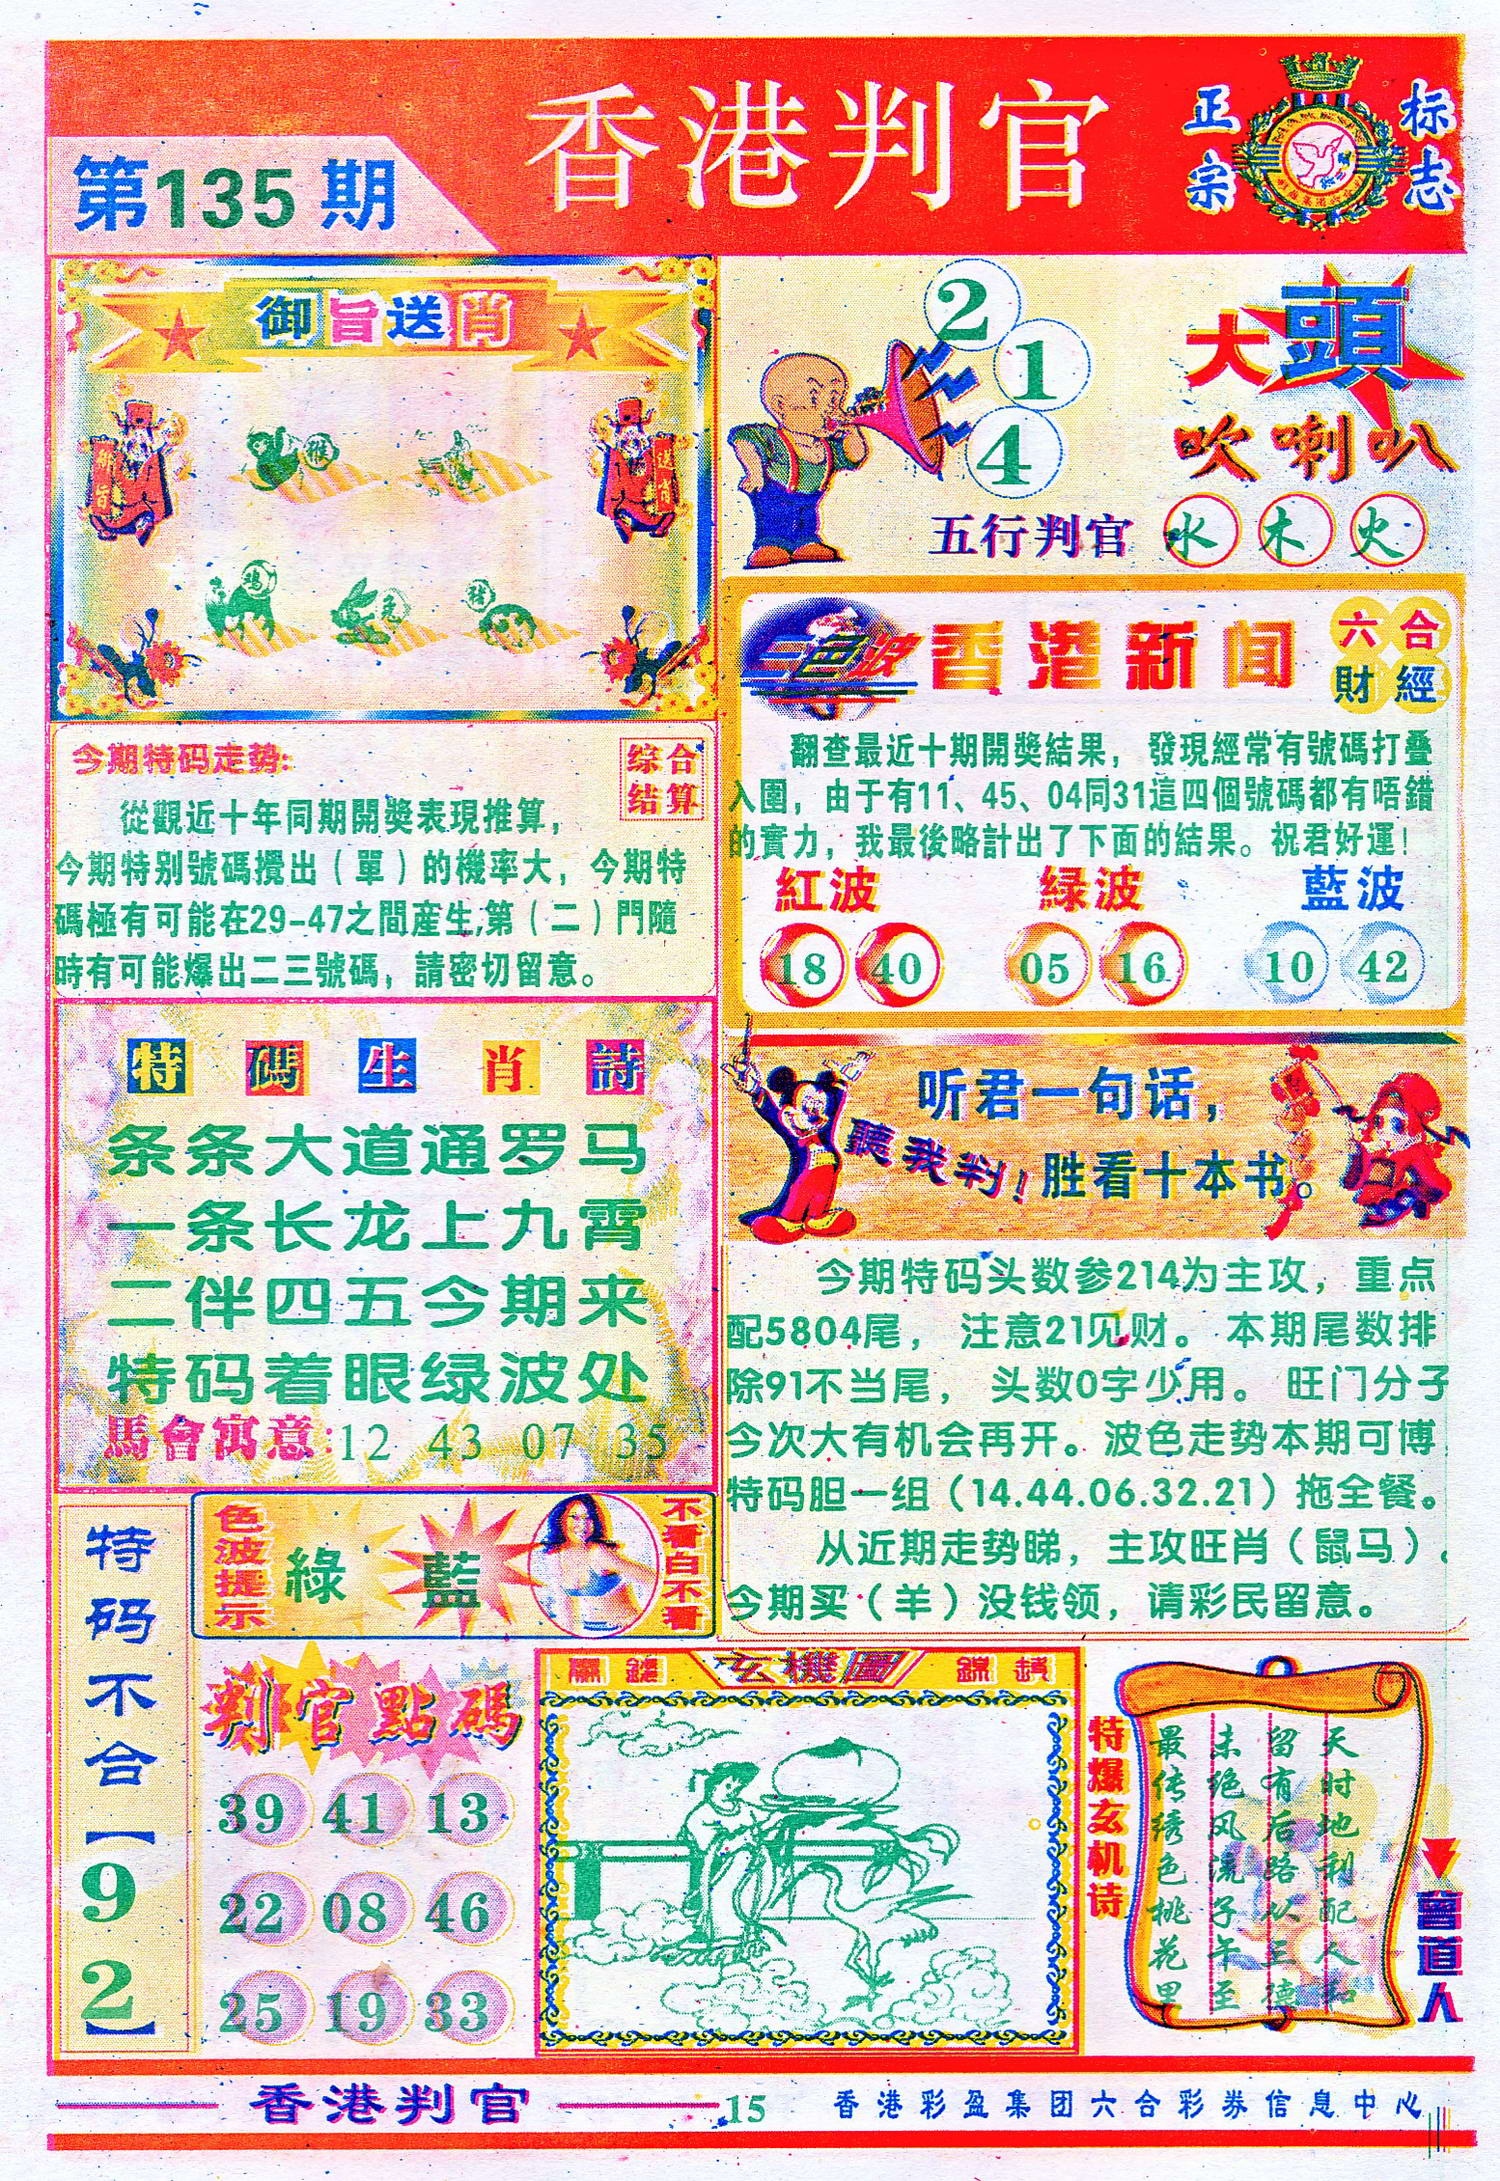 香港判官
正宗
标志
第135期
御旨送肖
御旨
送肖
猴
鸡
兔
猪
2
1
4
大頭
吹喇叭
五行判官 水 木 火
今期特码走势:
综合
结算
從觀近十年同期開獎表現推算,
今期特别號碼攪出(單)的機率大,今期特
碼極有可能在29-47之間産生,第(二)門隨
時有可能爆出二三號碼,請密切留意。
三色波
香港新闻
六合
財經
翻查最近十期開獎結果,發現經常有號碼打叠
入圍,由于有11、45、04同31這四個號碼都有唔錯
的實力,我最後略計出了下面的結果。祝君好運!
紅波 緑波 藍波
18 40 05 16 10 42
特碼生肖詩
条条大道通罗马
一条长龙上九霄
二伴四五今期来
特码着眼绿波处
馬會寓意:12 43 07 35
听君一句话,
聽我判!
胜看十本书。
今期特码头数参214为主攻,重点
配5804尾,注意21见财。本期尾数排
除91不当尾,头数0字少用。旺门分子
今次大有机会再开。波色走势本期可博
特码胆一组(14.44.06.32.21)拖全餐。
从近期走势睇,主攻旺肖(鼠马)。
今期买(羊)没钱领,请彩民留意。
特码不合【92】
色波提示
綠
藍
不看白不看
判官點碼
39 41 13
22 08 46
25 19 33
玄機圖
特爆玄机诗
天时地利配人和
留有后路以三德
未绝风流子午至
最传绣色桃花里
曾道人
香港判官
15
香港彩盈集团六合彩券信息中心